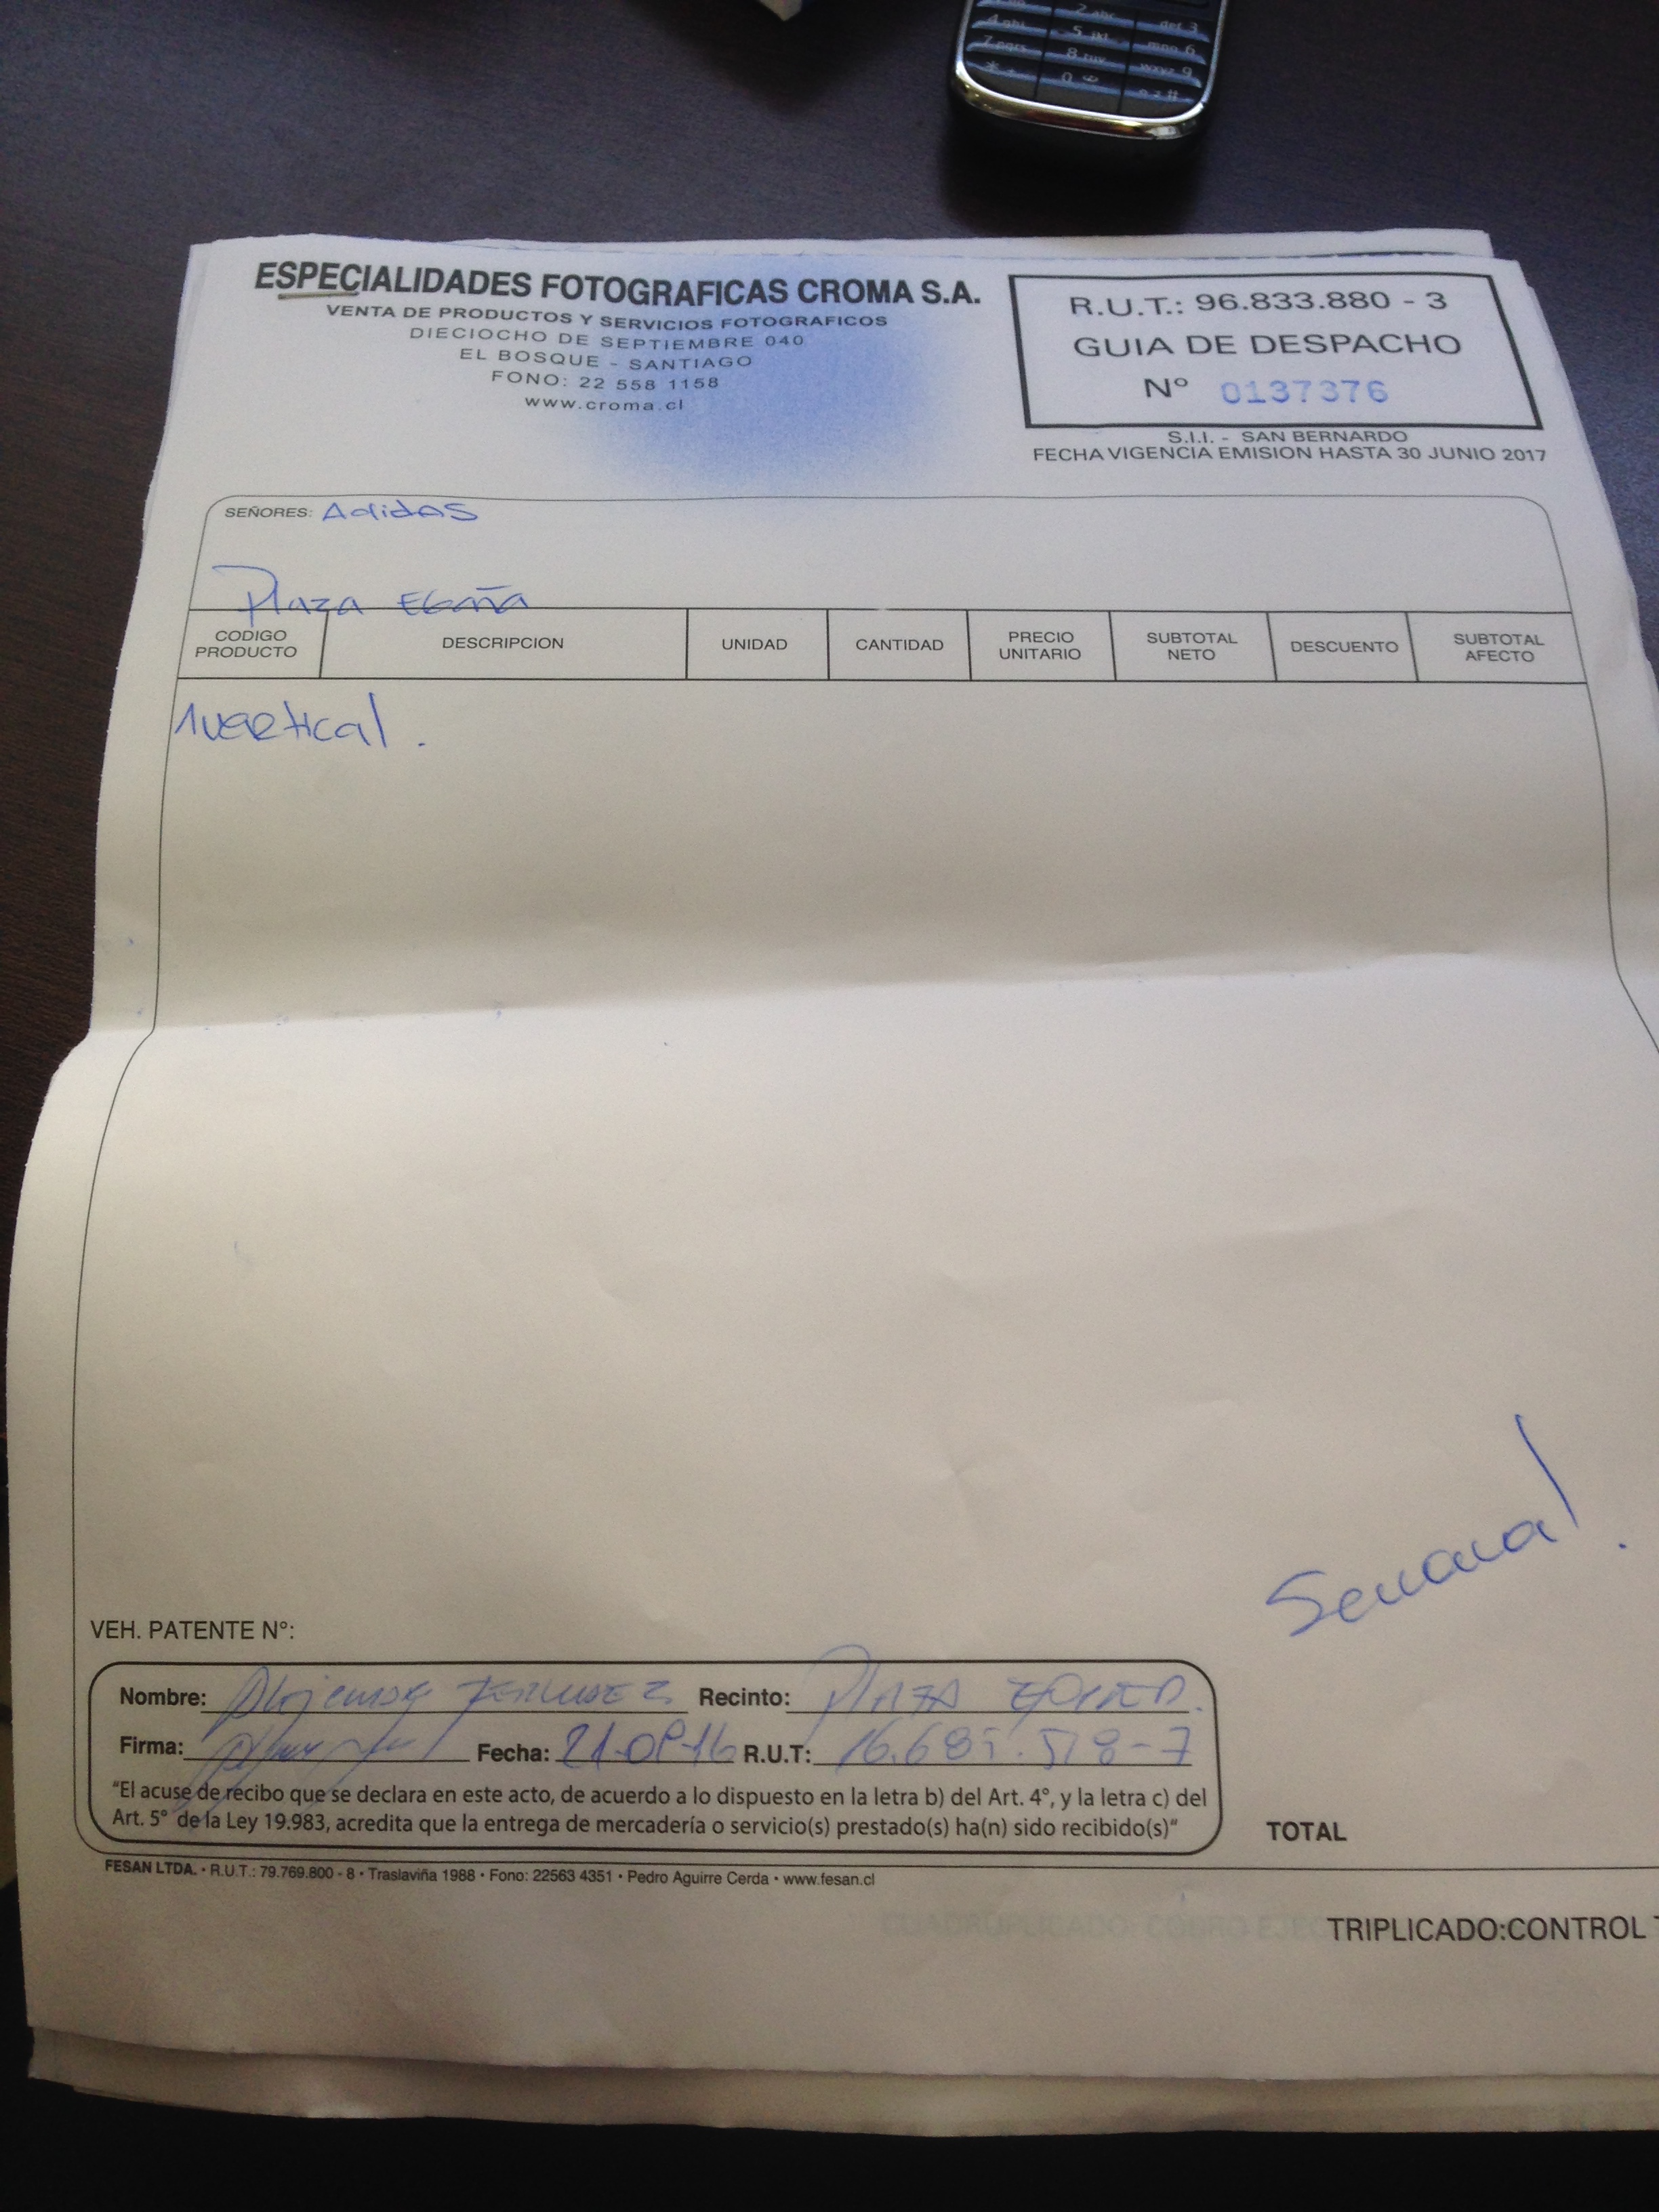 ESPECIALIDADES FOTOGRAFICAS CROMA S.A.
VENTA DE PRODUCTOS Y SERVICIOS FOTOGRAFICOS
DIECIOCHO DE SEPTIEMBRE 040
EL BOSQUE - SANTIAGO
FONO: 22 558 1158
www.croma.cl
R.U.T.: 96.833.880 - 3
GUIA DE DESPACHO
Nº 0137376
S.I.I. - SAN BERNARDO
FECHA VIGENCIA EMISION HASTA 30 JUNIO 2017
SEÑORES: Adidas
Plaza Egaña
CODIGO PRODUCTO DESCRIPCION UNIDAD CANTIDAD PRECIO UNITARIO SUBTOTAL NETO DESCUENTO SUBTOTAL AFECTO
VEH. PATENTE N°:
Nombre: Recinto: Plaza
Firma: Fecha: R.U.T:
"El acuse de recibo que se declara en este acto, de acuerdo a lo dispuesto en la letra b) del Art. 4°, y la letra c) del
Art. 5° de la Ley 19.983, acredita que la entrega de mercadería o servicio(s) prestado(s) ha(n) sido recibido(s)"
TOTAL
FESAN LTDA. • R.U.T.: 79.769.800 - 8 • Traslaviña 1988 • Fono: 22563 4351 • Pedro Aguirre Cerda • www.fesan.cl
TRIPLICADO:CONTROL